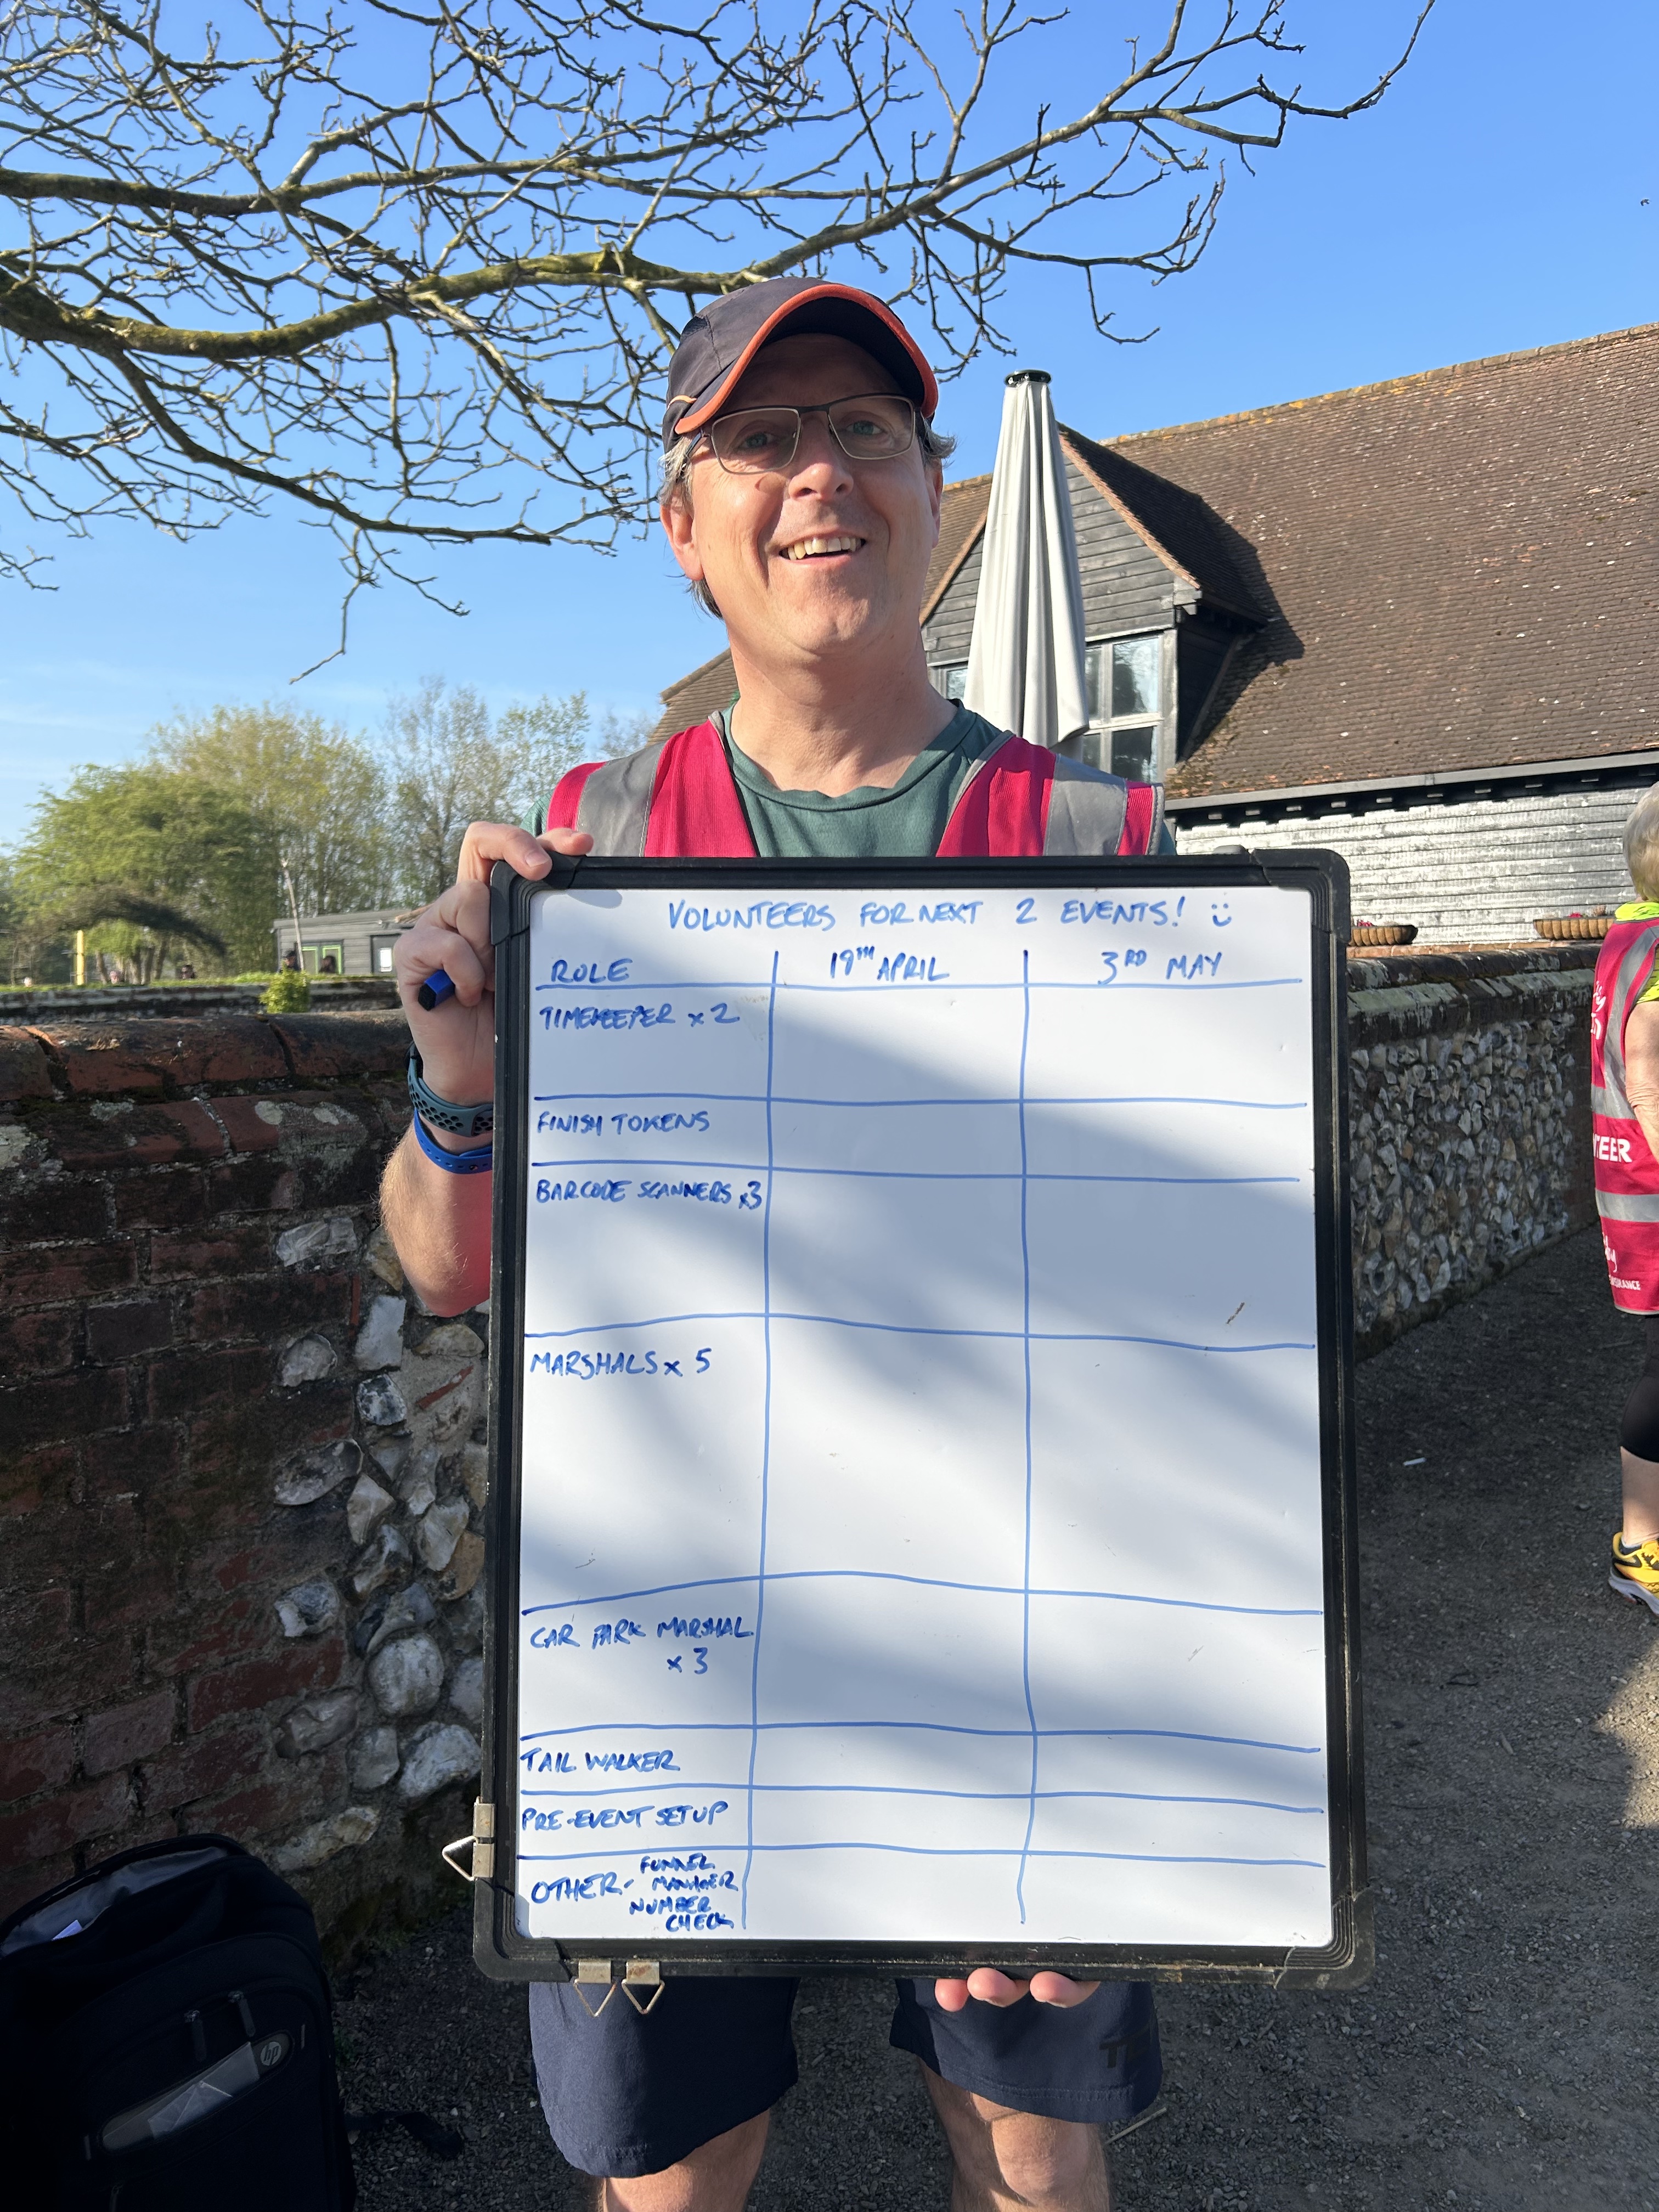 VOLUNTEERS FOR NEXT 2 EVENTS! :)
ROLE 19TH APRIL 3RD MAY
TIMEKEEPER x 2
FINISH TOKENS
BARCODE SCANNERS x3
MARSHALS x 5
CAR PARK MARSHAL
x 3
TAIL WALKER
PRE-EVENT SETUP
OTHER - FUNNEL
MANAGER
NUMBER
CHECK
TEER
hp